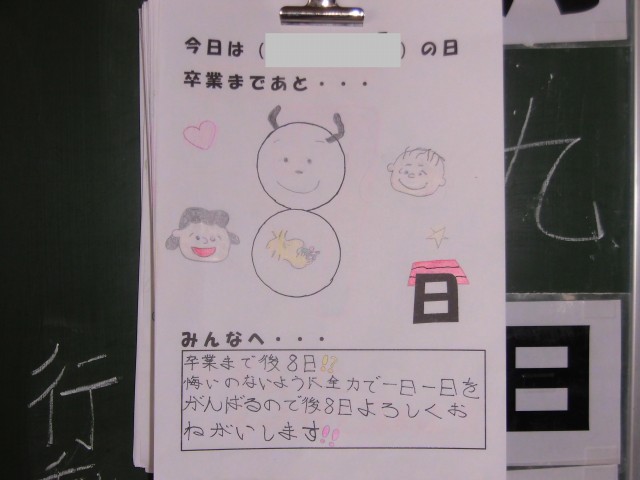 今日は（　　　）の日
卒業まであと・・・
日
みんなへ・・・
卒業まで後8日!!
悔いのないように全力で一日一日を
がんばるので後8日よろしくお
ねがいします!!
九
日
行